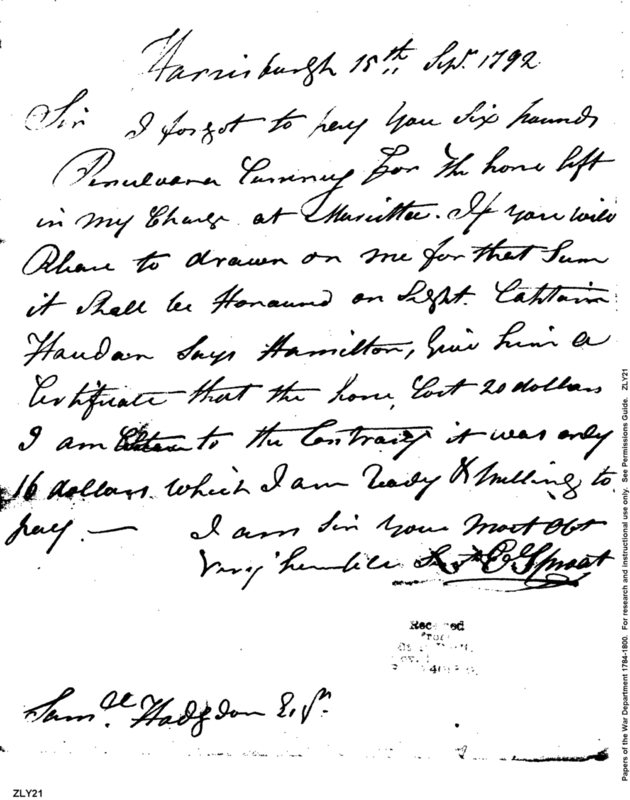 Harrisburgh 15th Sepr. 1792
Sir I forgot to pay you Six pounds
Currency for the horse left
in my Charge at Marietta. If you will
Please to drawn on me for that Sum
it Shall be Honoured on Sight. Captain
Says Hamilton, Give him a
Certificate that the horse, Cost 20 dollars
I am to the Contrary it was only
16 dollars which I am ready & willing to
pay. — I am Sir your Most Obt
Very humble E Sproat
Received
Saml. Hodgdon Esqr.
ZLY21
Papers of the War Department 1784-1800. For research and instructional use only. See Permissions Guide. ZLY21